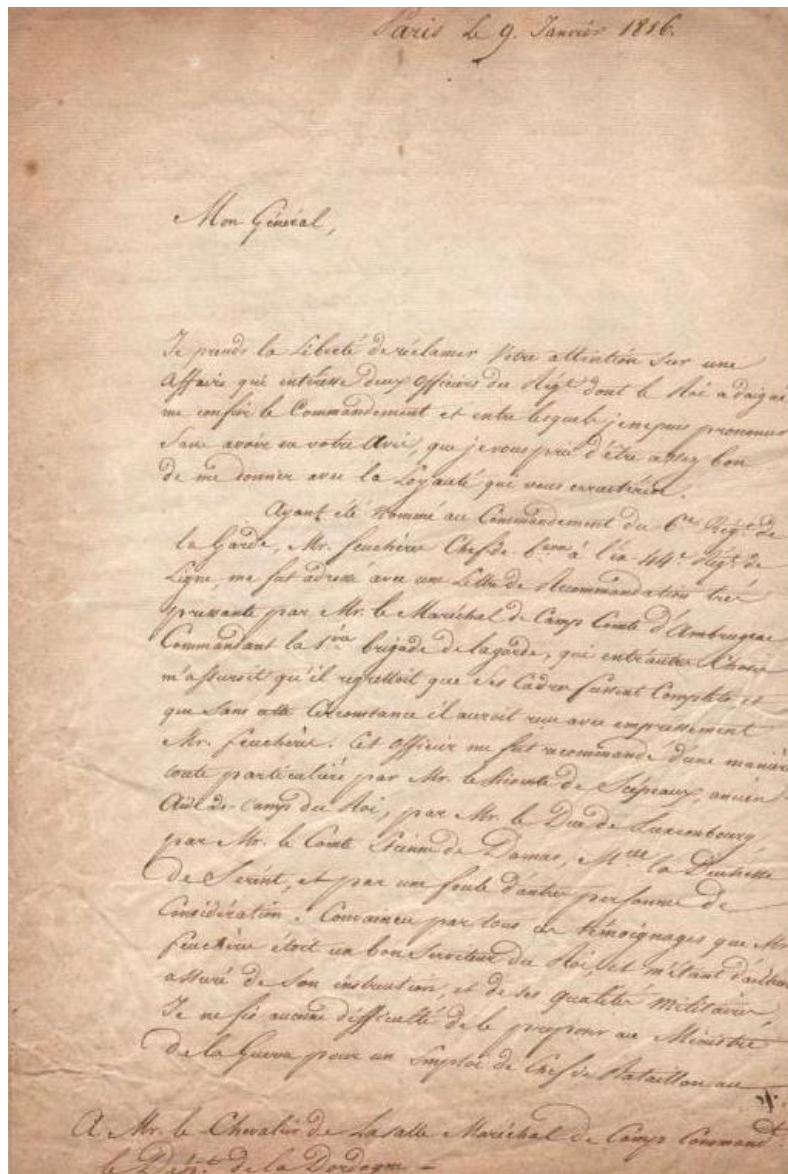 Paris le 9. Janvier 1816.
Mon Général,
Je prends la Liberté de réclamer Votre attention sur une
Affaire qui intéresse deux Officiers du Régt. dont le Roi a daigné
me confier le Commandement et entre lesquels je ne puis prononcer
Sans avoir eu votre Avis, que je vous prie d'être assez bon
de me donner avec la Loyauté qui vous caractérise.
Ayant été nommé au Commandement du 6me Régt. de
la Garde, Mr. feuchère Chef de Bon à l'ex 44e Régt. de
Ligne, me fut adressé avec une Lettre de Recommandation très
pressante par Mr. le Maréchal de Camp Comte d'Ambrugeac
Commandant la 1ère brigade de la garde, qui entr'autres Choses
m'assuroit qu'il regrettoit que ses Cadres fussent Complets, et
que Sans cette Circonstance il auroit reçu avec empressement
Mr. feuchère. Cet officier me fut recommandé d'une manière
toute particulière par Mr. le Vicomte de Scépeaux, ancien
Aide-de-Camp du Roi, par Mr. le Duc de Luxembourg,
par Mr. le Comte Etienne de Damas, Mme la Duchesse
de Serent, et par une foule d'autres personnes de
Considération. Convaincu par tous ces témoignages que Mr.
feuchère étoit un bon Serviteur du Roi, et m'étant d'ailleurs
assuré de Son instruction, et de ses qualités militaires,
Je ne fis aucune difficulté de le proposer au Ministre
de la Guerre pour un Emploi de Chef de Bataillon au
A Mr. le Chevalier de Lasalle Maréchal de Camp Commandt.
le Dépt. de la Dordogne =